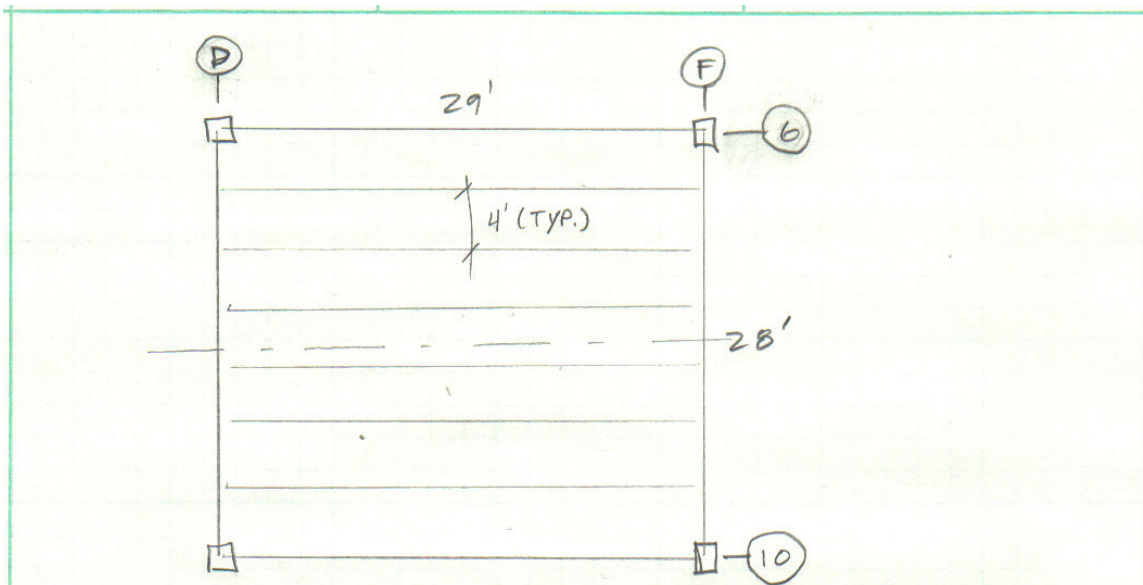 D
F
29'
6
4' (TYP.)
28'
10